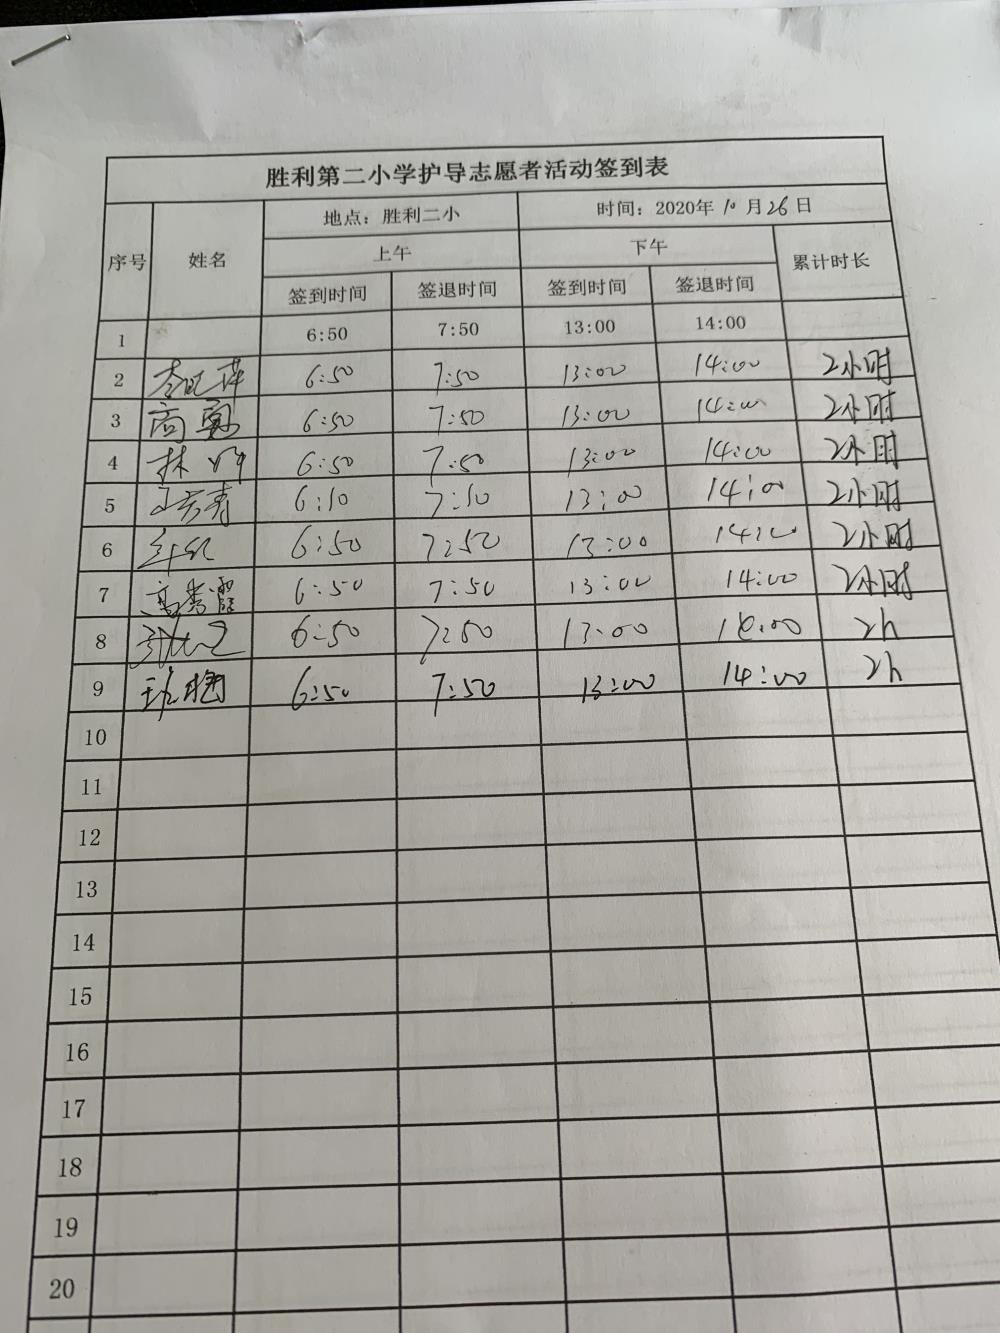 胜利第二小学护导志愿者活动签到表
序号 姓名 地点：胜利二小 时间：2020年10月26日 累计时长
上午 下午
签到时间 签退时间 签到时间 签退时间
1 6:50 7:50 13:00 14:00
2 6:50 7:50 13:00 14:00 2小时
3 6:50 7:50 13:00 14:00 2小时
4 林 6:50 7:50 13:00 14:00 2小时
5 6:10 7:10 13:00 14:00 2小时
6 6:50 7:50 13:00 14:00 2小时
7 6:50 7:50 13:00 14:00 2小时
8 6:50 7:50 13:00 2h
9 6:50 7:50 13:00 14:00 2h
10
11
12
13
14
15
16
17
18
19
20